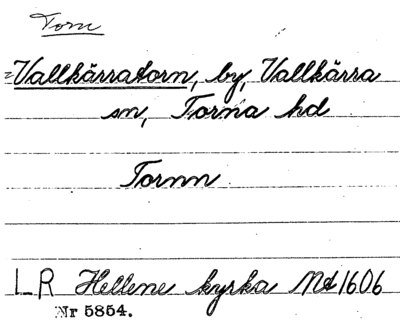 Torn
Vallkärratorn, by, Vallkärra
sn, Torna hd
Tornn
LR Hellene kyrka Nd 1606
Nr 5854.